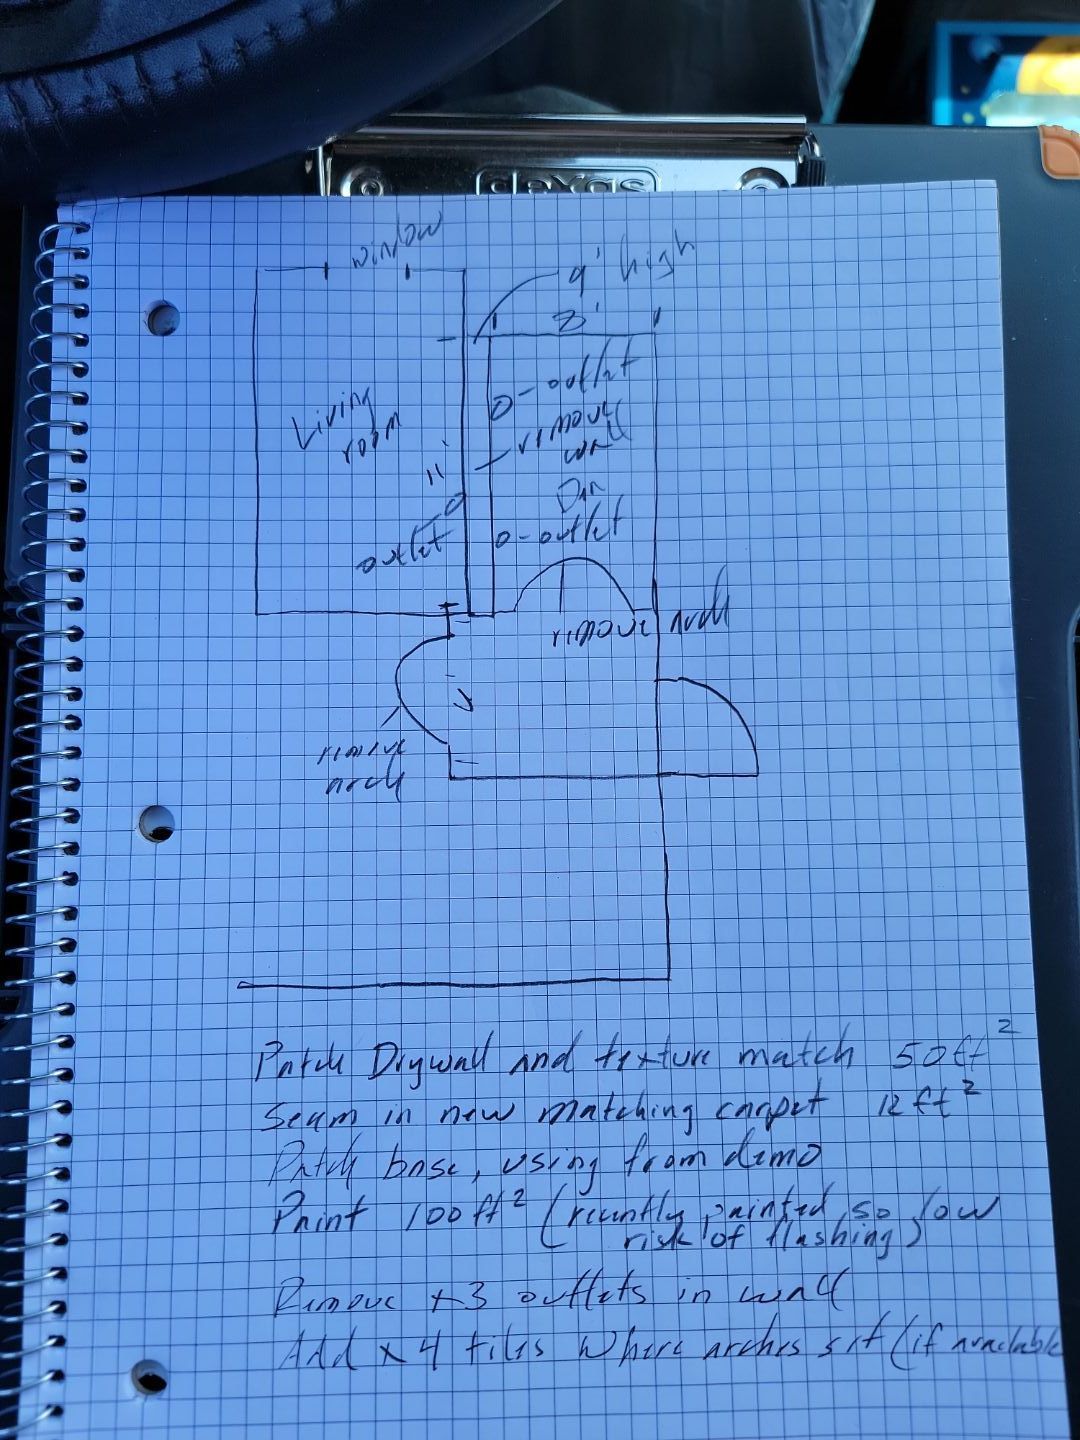 dexas
window
9' high
8'
0-outlet
Living
room
remove
wall
11'
Din
outlet
0-outlet
remove arch
remove
arch
Patch Drywall and texture match 50ft²
Seam in new matching carpet 12ft²
Patch base, using from demo
Paint 100ft² (recently painted, so low
risk of flashing)
Remove x3 outlets in wall
Add x4 tiles where arches sit (if available